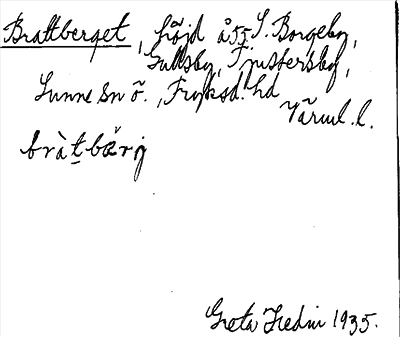 Brattberget, höjd å 55 S. Borgeby,
Gullsby, Finstersby,
Sunne sn ö., Fryksd. hd
Värml. l.
bràtbärj
Greta Hedin 1935.